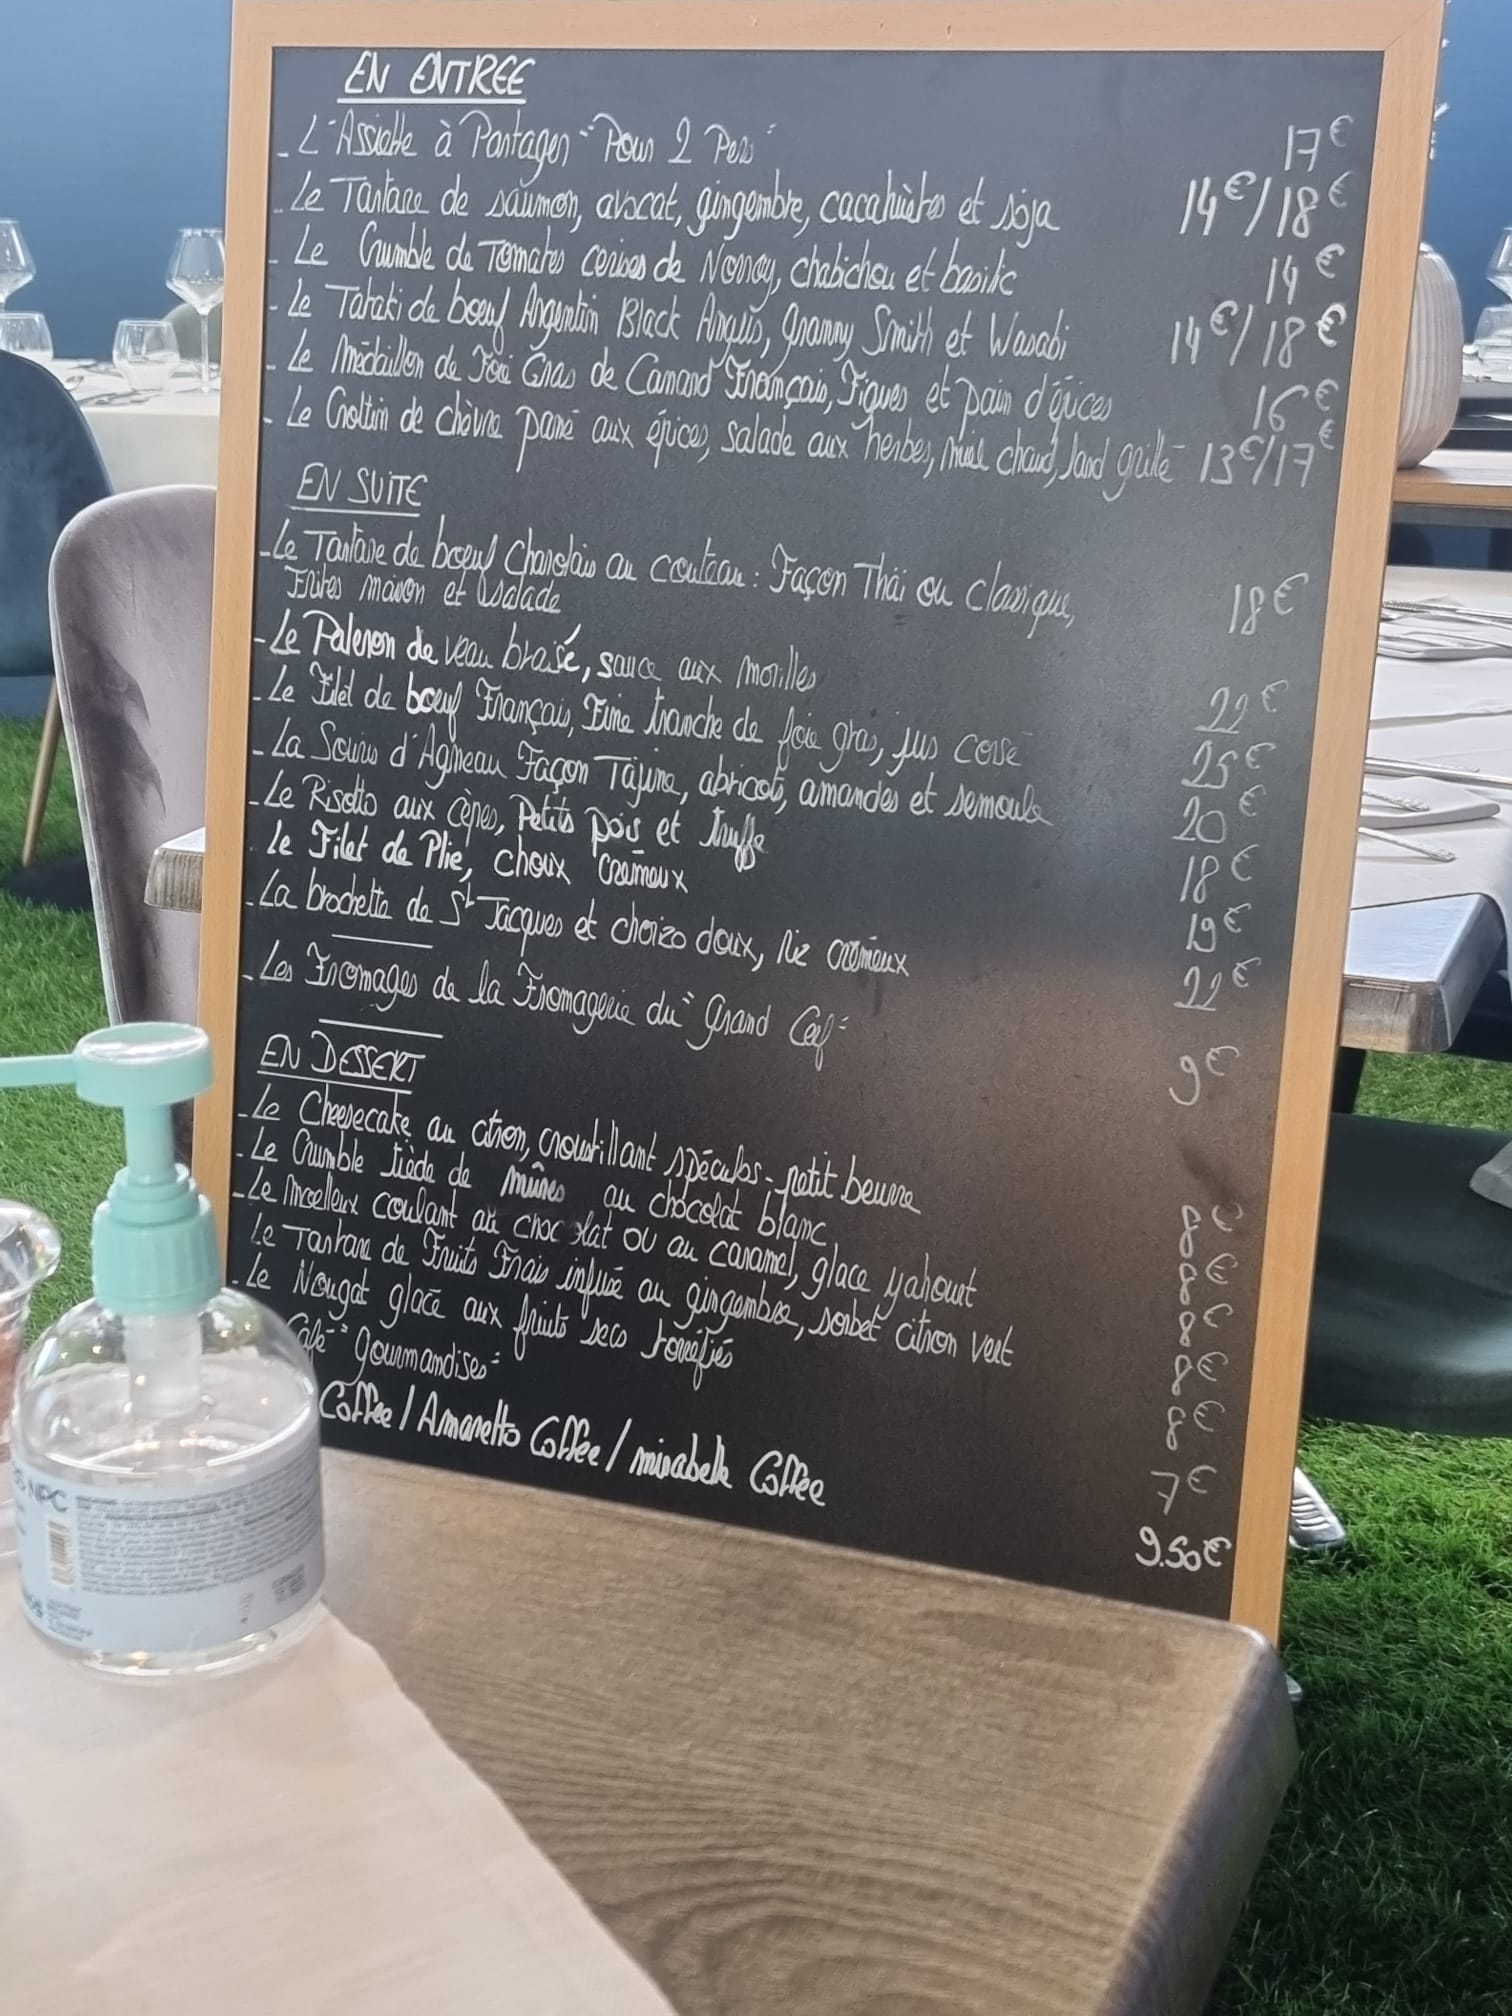 EN ENTREE
- L'Assiette à Partager "Pour 2 Pers" 17€
- Le Tartare de saumon, avocat, gingembre, cacahuètes et soja 14€/18€
- Le Crumble de Tomates cerises de Nomay, chabichou et basilic 14€
- Le Tataki de boeuf Argentin Black Angus, Granny Smith et Wasabi 14€/18€
- Le Médaillon de Foie Gras de Canard Français, Figues et pain d'épices 16€
- Le Crottin de chèvre pané aux épices, salade aux herbes, miel chaud, lard grillé 13€/17€
EN SUITE
- Le Tartare de boeuf Charolais au couteau : Façon Thaï ou classique, 18€
Frites maison et salade
- Le Paleron de veau braisé, sauce aux morilles 22€
- Le Filet de boeuf Français, Fine tranche de foie gras, jus corsé 25€
- La Souris d'Agneau Façon Tajine, abricots, amandes et semoule 20€
- Le Risotto aux cèpes, Petits pois et truffe 18€
Le Filet de Plie, choux crémeux 19€
- La brochette de St Jacques et chorizo doux, riz crémeux 22€
- Les Fromages de la Fromagerie du "Grand Cerf" 9€
EN DESSERT
- Le Cheesecake au citron, croustillant spéculos - petit beurre 8€
- Le Crumble tiède de mûres au chocolat blanc 8€
- Le Moelleux coulant au chocolat OU au caramel, glace yahourt 8€
Le Tartare de Fruits Frais infusé au gingembre, sorbet citron vert 8€
- Le Nougat glacé aux fruits secs torréfiés 8€
Café "gourmandises" 7€
Coffee / Amaretto Coffee / mirabelle Coffee 9.50€
NPC